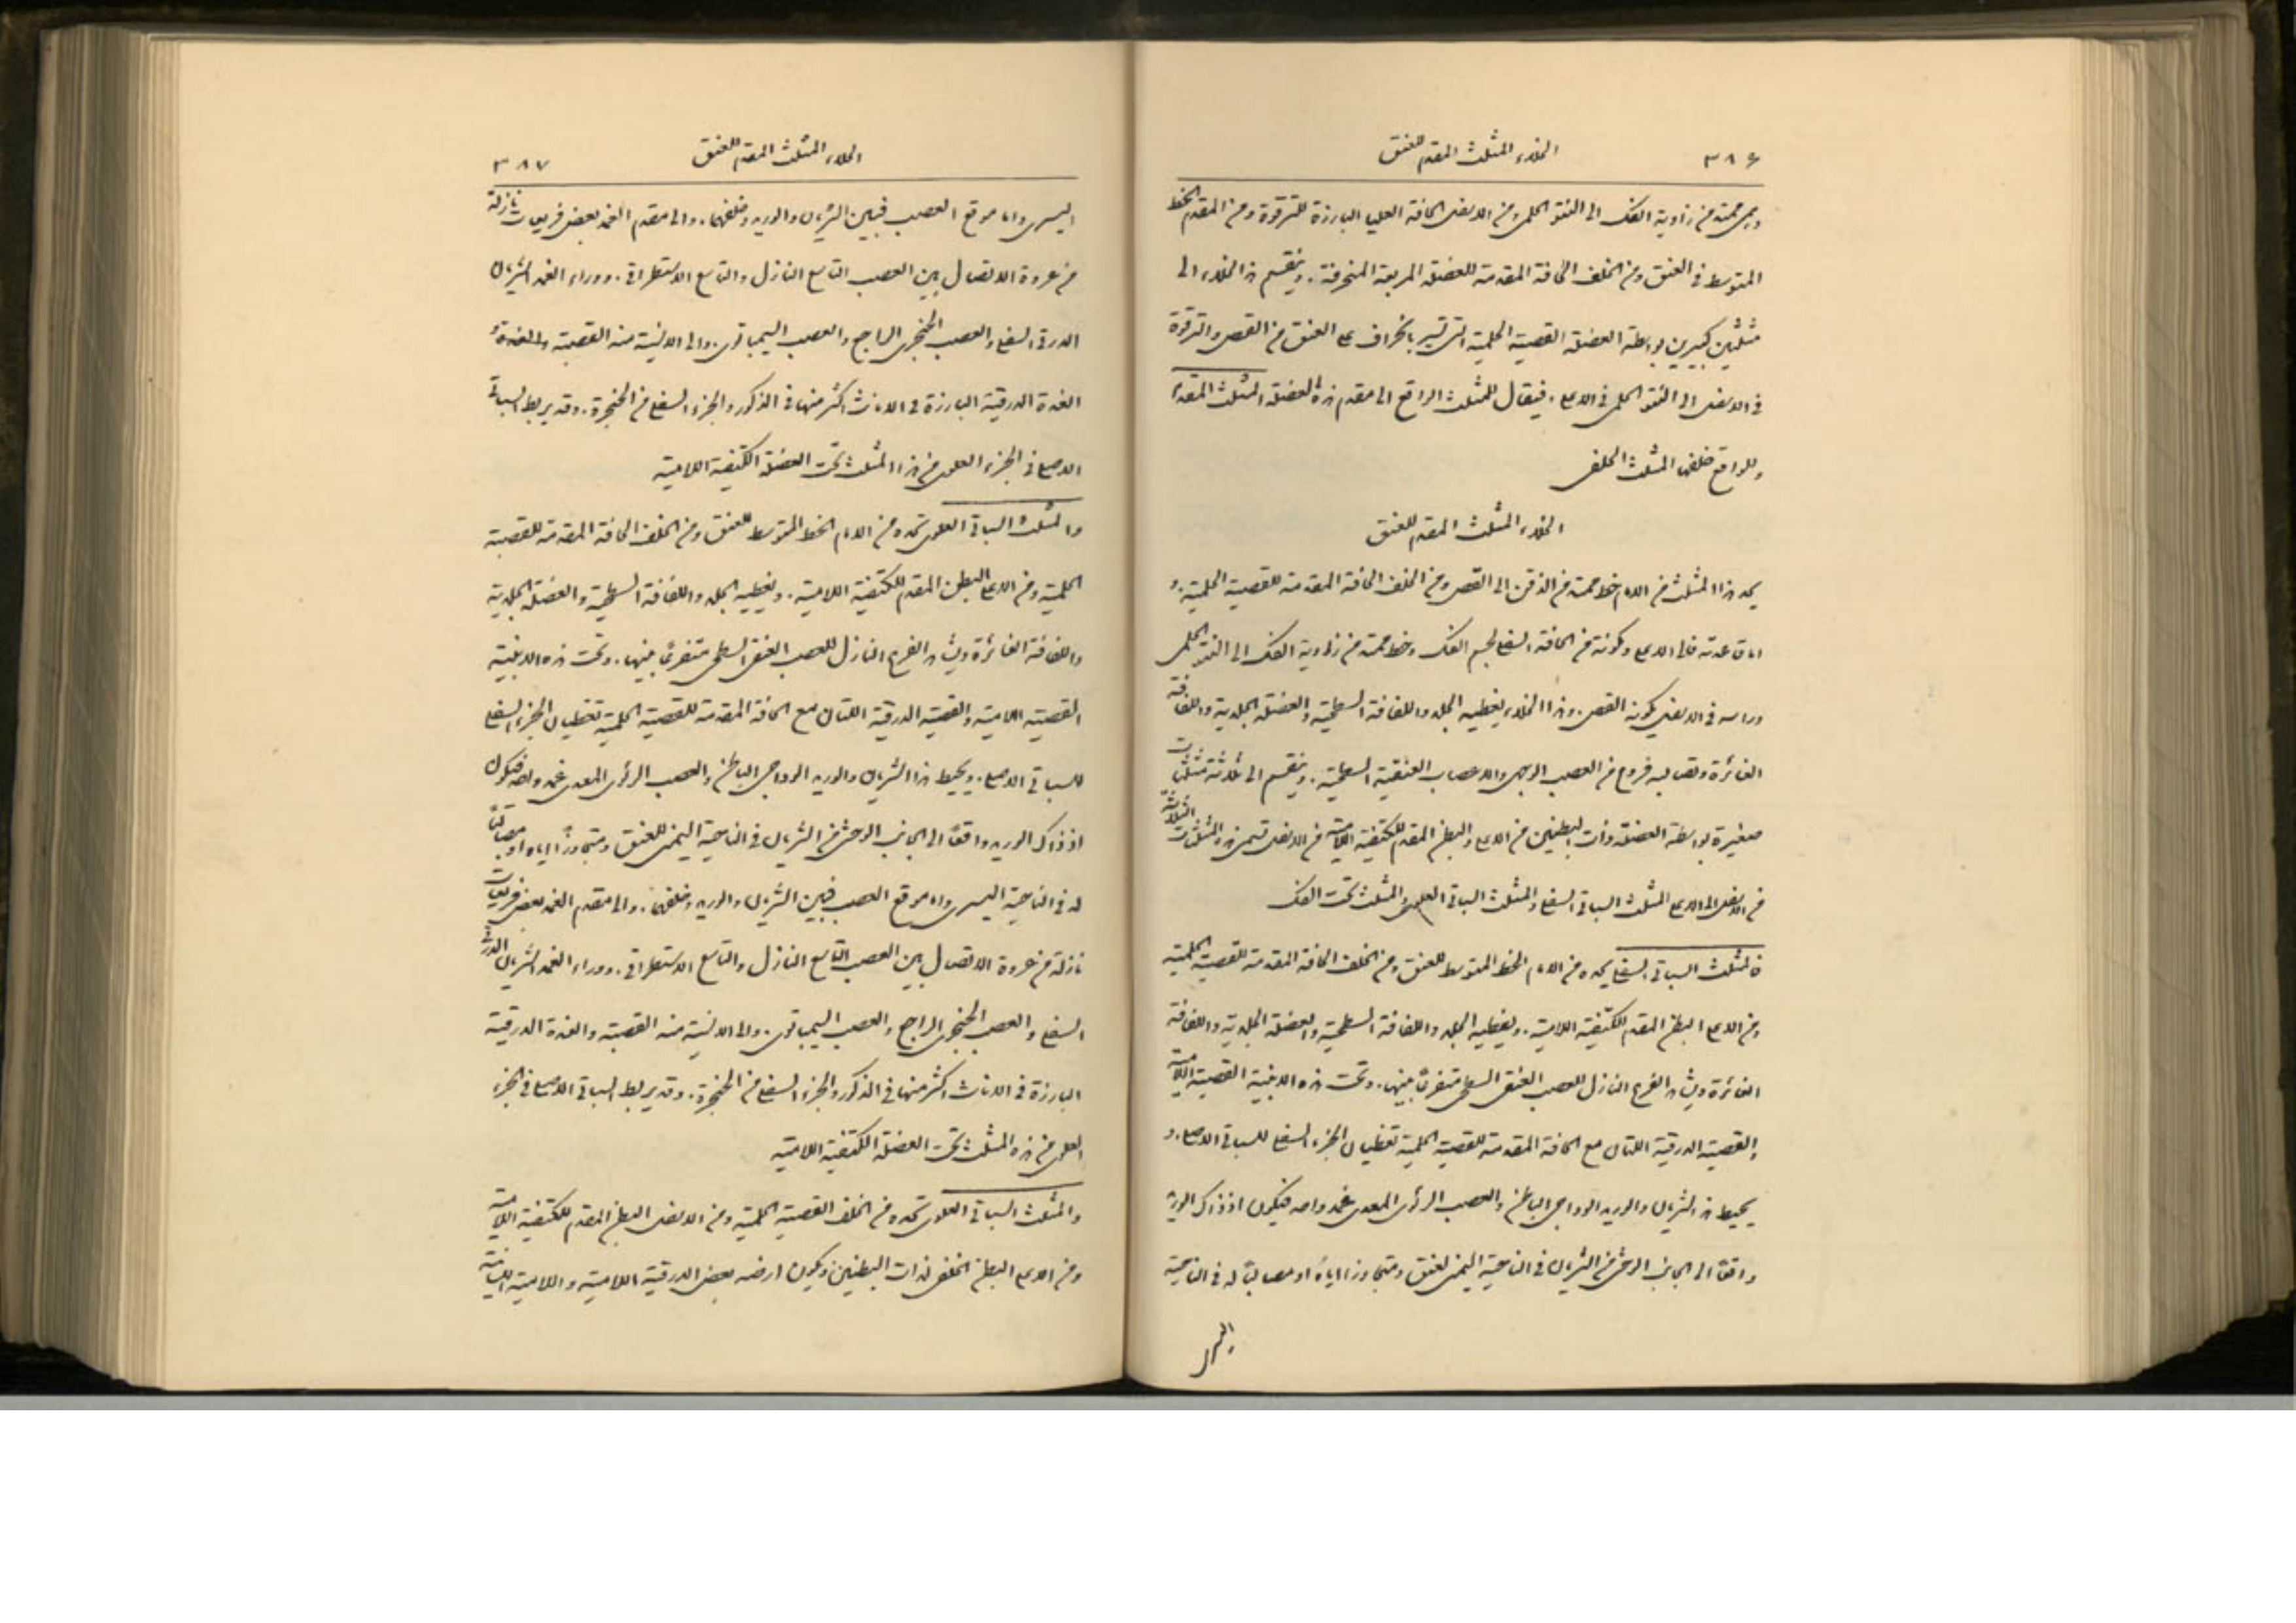 ٣٨٦ الخلاء المثلث المقدم للعنق
وهي ممتد من زاوية الفك الى النتو الحلمي ومن الاسفل الحافة العليا البارزة للترقوة ومن المقدم الخط
المتوسط في العنق ومن الخلف الحافة المقدمة للعضلة المربعة المنحرفة. وينقسم هذا الخلاء الى
مثلثين كبيرين بواسطة العضلة القصية الحلمية التي تسير بانحراف على العنق من القص والترقوة
في الاسفل الى النتو الحلمي في الاعلى. فيقال للمثلث الواقع الى مقدم هذه العضلة المثلث المقدم
وللواقع خلفها المثلث الخلفي
الخلاء المثلث المقدم للعنق
يحد هذا المثلث من الامام خط ممتد من الذقن الى القص ومن الخلف الحافة المقدمة للقصية الحلمية. و
اما قاعدته فالى الاعلى ومكونة من الحافة السفلى لجسم الفك وخط ممتد من زاوية الفك الى النتو الحلمي
وراسه في الاسفل يكونه القص. وهذا الخلاء يغطيه الجلد واللفافة السطحية والعضلة الجلدية واللفافة
الغائرة وتصالبه فروع من العصب الوجهي والاعصاب العنقية السطحية. وينقسم الى ثلاثة مثلثات
صغيرة بواسطة العضلة ذات البطنين من الاعلى والبطن المقدم للكتفية اللامية من الاسفل تسمى هذه المثلثات الثلاثة
من الاسفل الى الاعلى المثلث السباتي السفلي والمثلث السباتي العلوي والمثلث تحت الفك
فالمثلث السباتي السفلي يحده من الامام الخط المتوسط للعنق ومن الخلف الحافة المقدمة للقصية الحلمية
ومن الاعلى البطن المقدم للكتفية اللامية. ويغطيه الجلد واللفافة السطحية والعضلة الجلدية واللفافة
الغائرة ويشاهد الفرع النازل للعصب العنقي السطحي متفرعًا بينها. وتحت هذه الاغشية القصية اللامية
والقصية الدرقية اللتان مع الحافة المقدمة للقصية الحلمية تغطيان الجزء السفلي للسباتي الاصلي. و
يحيط هذا الشريان والوريد الوداجي الباطن والعصب الرئوي المعدي غمد واحد فيكون اذ ذاك الوريد
واقعًا الى الجانب الوحشي من الشريان في الناحية اليمنى للعنق ومتجاوزا اياه او مصالبًا له في الناحية
٣٨٧ الخلاء المثلث المقدم للعنق
اليسرى واما موقع العصب فبين الشريان والوريد وخلفهما. والى مقدم الغمد بعض فريعات نازلة
من عروة الاتصال بين العصب التاسع النازل والتاسع الاستطراقي. ووراء الغمد الشريان
الدرقي السفلي والعصب الحنجري الراجع والعصب السيمباتوي. والى الانسية منه القصبة والغدة
الغدة الدرقية البارزة في الاناث اكثر منها في الذكور والجزء السفلي من الحنجرة. وقد يربط السباتي
الاصلي في الجزء العلوي من هذا المثلث تحت العضلة الكتفية اللامية
والمثلث السباتي العلوي تحده من الامام الخط المتوسط للعنق ومن الخلف الحافة المقدمة للقصية
الحلمية ومن الاعلى البطن المقدم للكتفية اللامية. ويغطيه الجلد واللفافة السطحية والعضلة الجلدية
واللفافة الغائرة ويشاهد الفرع النازل للعصب العنقي السطحي متفرعًا بينها. وتحت هذه الاغشية
القصية اللامية والقصية الدرقية اللتان مع الحافة المقدمة للقصية الحلمية تغطيان الجزء السفلي
للسباتي الاصلي. ويحيط هذا الشريان والوريد الوداجي الباطن والعصب الرئوي المعدي غمد واحد فيكون
اذ ذاك الوريد واقعًا الى الجانب الوحشي من الشريان في الناحية اليمنى للعنق ومتجاوزًا اياه او مصالبًا
له في الناحية اليسرى واما موقع العصب فبين الشريان والوريد وخلفهما. والى مقدم الغمد بعض فريعات
نازلة من عروة الاتصال بين العصب التاسع النازل والتاسع الاستطراقي. ووراء الغمد الشريان الدرقي
السفلي والعصب الحنجري الراجع والعصب السيمباتوي. والى الانسية منه القصبة والغدة الدرقية
البارزة في الاناث اكثر منها في الذكور والجزء السفلي من الحنجرة. وقد يربط السباتي الاصلي في الجزء
العلوي من هذه المثلث تحت العضلة الكتفية اللامية
والمثلث السباتي العلوي تحده من الخلف القصية الحلمية ومن الاسفل البطن المقدم للكتفية اللامية
ومن الاعلى البطن الخلفي لذات البطنين ويكون ارضه بعض الدرقية اللامية واللامية اللسانية